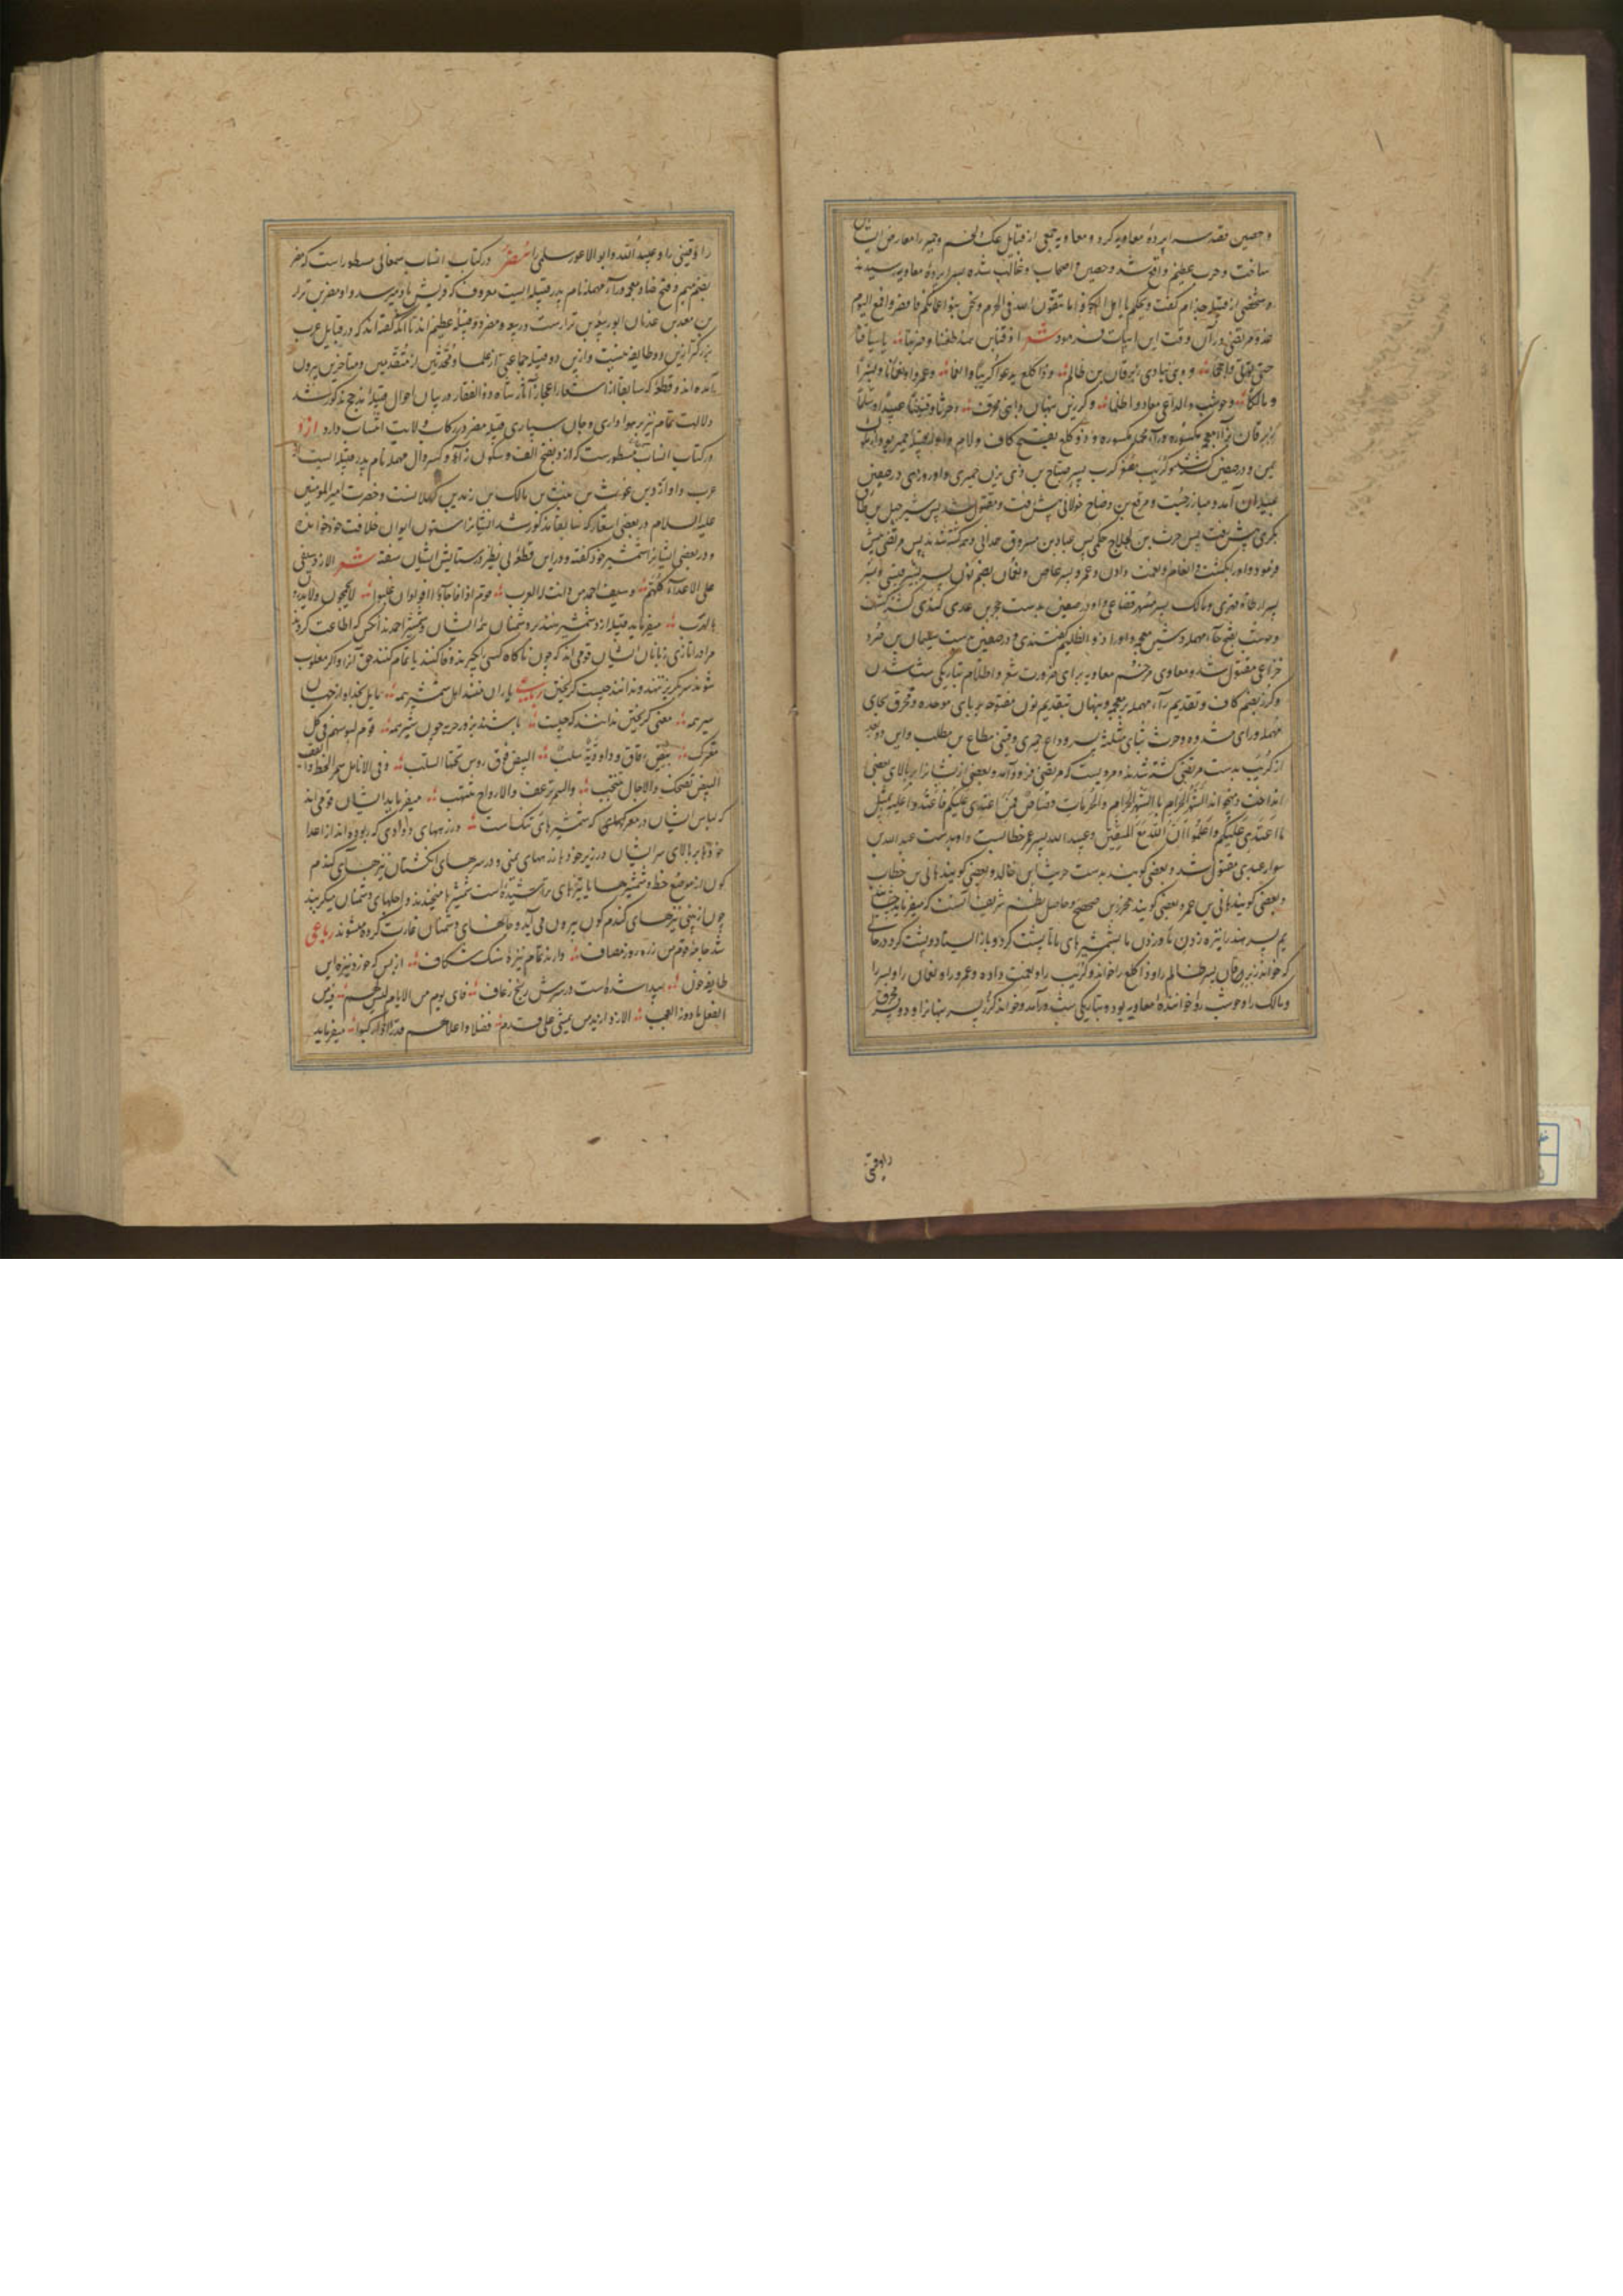 و حصین قصد سراپردهٔ معاویه کرد و معاویه جمعی از قبایل عک و لخم و حمیر را معارض ایشان
ساخت و حرب عظیم واقع شد و حصین و اصحاب او غالب شده بسراپردهٔ معاویه رسیدند
و شخصی از قبیله جذام گفت ویلکم یا اما تتقون الله فی الحرم و نحن بنو اعمامکم
مرتضی در آن وقت این ابیات فرمود شعر
حتی ینادی زبرقان بن ظالم و ذا کلع یدعو کریبا و انعما و عمرا و نعمانا و بسرا
و مالکا و حوشب و الداعی معاویه و اظلما و کرز بن نبهان و ابنی محرق و حرثا و قینیا عبید و سلما
زبرقان بزاء معجمه مکسوره و راء مهمله مکسوره و ذو کلع بفتح کاف و لام
یمن و در صفین کشته شد و کریب مصغر کرب پسر صباح بن ذی یزن حمیری و او روزی در صفین
بمیدان آمد و مبارز جست و مرقع بن وضاح خولانی پیش رفت و مقتول شد پس شرحبیل بن
بکری پیش رفت پس حرث بن الجلاح حکمی پس عباد بن مسروق همدانی و همه کشته شدند پس مرتضی پیش
فرمود و او را بکشت و انعام نعمت دادن و عمرو پسر عاص و نعمان بضم نون پسر بشیر و بسر
پسر ارطاة فهری و مالک پسر مسهر قضاعی و او در صفین بدست حجر بن عدی کندی کشته گشت
و حوشب بفتح حاء مهمله و شین معجمه و او را ذو الظلیم گفتندی و در صفین بدست سلیمان بن صرد
خزاعی مقتول شد و معاوی مرخم معاویه برای ضرورت شعر و اظلام بتاریکی شب شدن
و کرز بضم کاف و تقدیم راء مهمله بر معجمه و نبهان بتقدیم نون مفتوحه بر بای موحده و محرق بحای
مهمله و رای مشدده و حرث بثای مثلثه پسر وداع حمیری و قینی مطاع بن مطلب و این دو بعد
از کریب بدست مرتضی کشته شدند و مرویست که مرتضی فرود آمد و بعضی از کشتگان را بر بالای بعضی
انداخت و میخواند الشهر الحرام بالشهر الحرام والحرمات قصاص فمن اعتدی علیکم فاعتدوا علیه بمثل
ما اعتدی علیکم واعلموا ان الله مع المتقین و عبید الله پسر عمر خطابست و او بدست عبدالله بن
سوار عبدی مقتول شد و بعضی گویند بدست حریث بن خالد و بعضی گویند هانی بن خطاب
و بعضی گویند هانی بن عمر و بعضی گویند محرز بن صحصح و حاصل نظم شریف آنست که میفرماید
پسر هند را نیزه زدن و زدن ما بشمشیرهای ما تا پشت کرد و باز ایستاد و پشت کرد در حالی
که خواند زبرقان پسر ظالم را و ذا کلع را خواند و کریب را و نعمت داده و عمرو را و نعمان را و بسر را
و مالک را و حوشب را و خوانندهٔ معاویه بوده بتاریکی شب در آمد و خواند کرز پسر نبهان را و دو پسر محرق
را و قینی
را و قینی را و عبید الله و ابو الاعور سلمی را مضر در کتاب انساب سمعانی مسطور است که مضر
بضم میم و فتح ضاد معجمه و راء مهمله نام پدر قبیله ایست معروف که قریش باو میرسد و او مضر بن نزار
بن معد بن عدنان ربیعة بن نزارست و ربیعه و مضر دو قبیلهٔ عظیم اند تا آنکه گفته اند که در قبایل عرب
بزرگتر ازین دو طایفه نیست و ازین دو قبیله جماعتی از علما و محدثین از متقدمین و متاخرین بیرون
آمده اند و قطعهٔ که سابقا از اشعار اعجاز آثار شاه ذو الفقار در بیان احوال قبیله مذحج مذکور شد
دلالت تمام بر هواداری و جان سپاری قبیله مضر در رکاب ولایت انتساب دارد ازد
در کتاب انساب مسطورست که ازد بفتح الف و سکون زاء و کسر دال مهمله نام پدر قبیله ایست از
عرب و او ازد بن غوث بن نبت بن مالک بن زید بن کهلانست و حضرت امیر المومنین
علیه السلام در بعضی اشعار که سابقا مذکور شد ایشانرا ستون ایوان خلافت خود خوانده
و در بعضی ایشانرا شمشیر خود گفته و در این قطعهٔ بی نظیر در ستایش ایشان سفته شعر الازد سیفی
علی الاعداء کلهم و سیف احمد من دانت له العرب قوم اذا فاجاوا اوفوا و ان غلبوا لا یحجمون ولا یدرون
ما الهرب میفرماید قبیله ازد شمشیر منند بر دشمنان همه ایشان و شمشیر احمدند آنکس که اطاعت کردند
مر او را تازی زبانان ایشان قومی اند که چون ناگاه کسی را بگیرند وفا کنند یا تمام کنند حق آنرا و اگر مغلوب
شوند سر گریز ننهند و ندانند چیست گریختن رباعی یاران منند اهل شمشیر همه مایل بخدا و از جهان
سیر همه معنی گریختن ندانند که چیست باشند بزور حرب چون شیر همه قوم لبوسهم فی کل
معترک بیض رقاق و داودیة سلب البیض فوق رؤس تحتها الیلب و فی الانامل سمر الخط و القضب
البیض تضحک والآجال تنتحب والسمر ترعف والارواح تنتهب میفرماید ایشان قومی اند
که لباس ایشان در معرکه شمشیرهای تنکست و زرههای داودی که ربوده اند از اعدا
خودها بر بالای سر ایشان و در زیر خودها زرههای یمنی و در سرهای انگشتان نیزهای گندم
گون از موضع خط و شمشیرها یا نیزهای تراشیده است شمشیرها میخندند و اجلهای دشمنان میگریند
چون از بینی نیزهای گندم گون بیرون می آید و جانهای دشمنان غارت کرده میشوند رباعی
شد جامه قوم من زره روز مصاف دارند تمام نیزهٔ سنگ شکاف از بس که خورد نیزه این
طایفه خون پیدا شده است در سرش رنج رعاف فای یوم من الایام لیس لهم فیه من
الفعل ما من دونه العجب الازد ازید من یمشی علی قدم فضلا و اعلاهم قدرا اذا رکبوا میفرماید